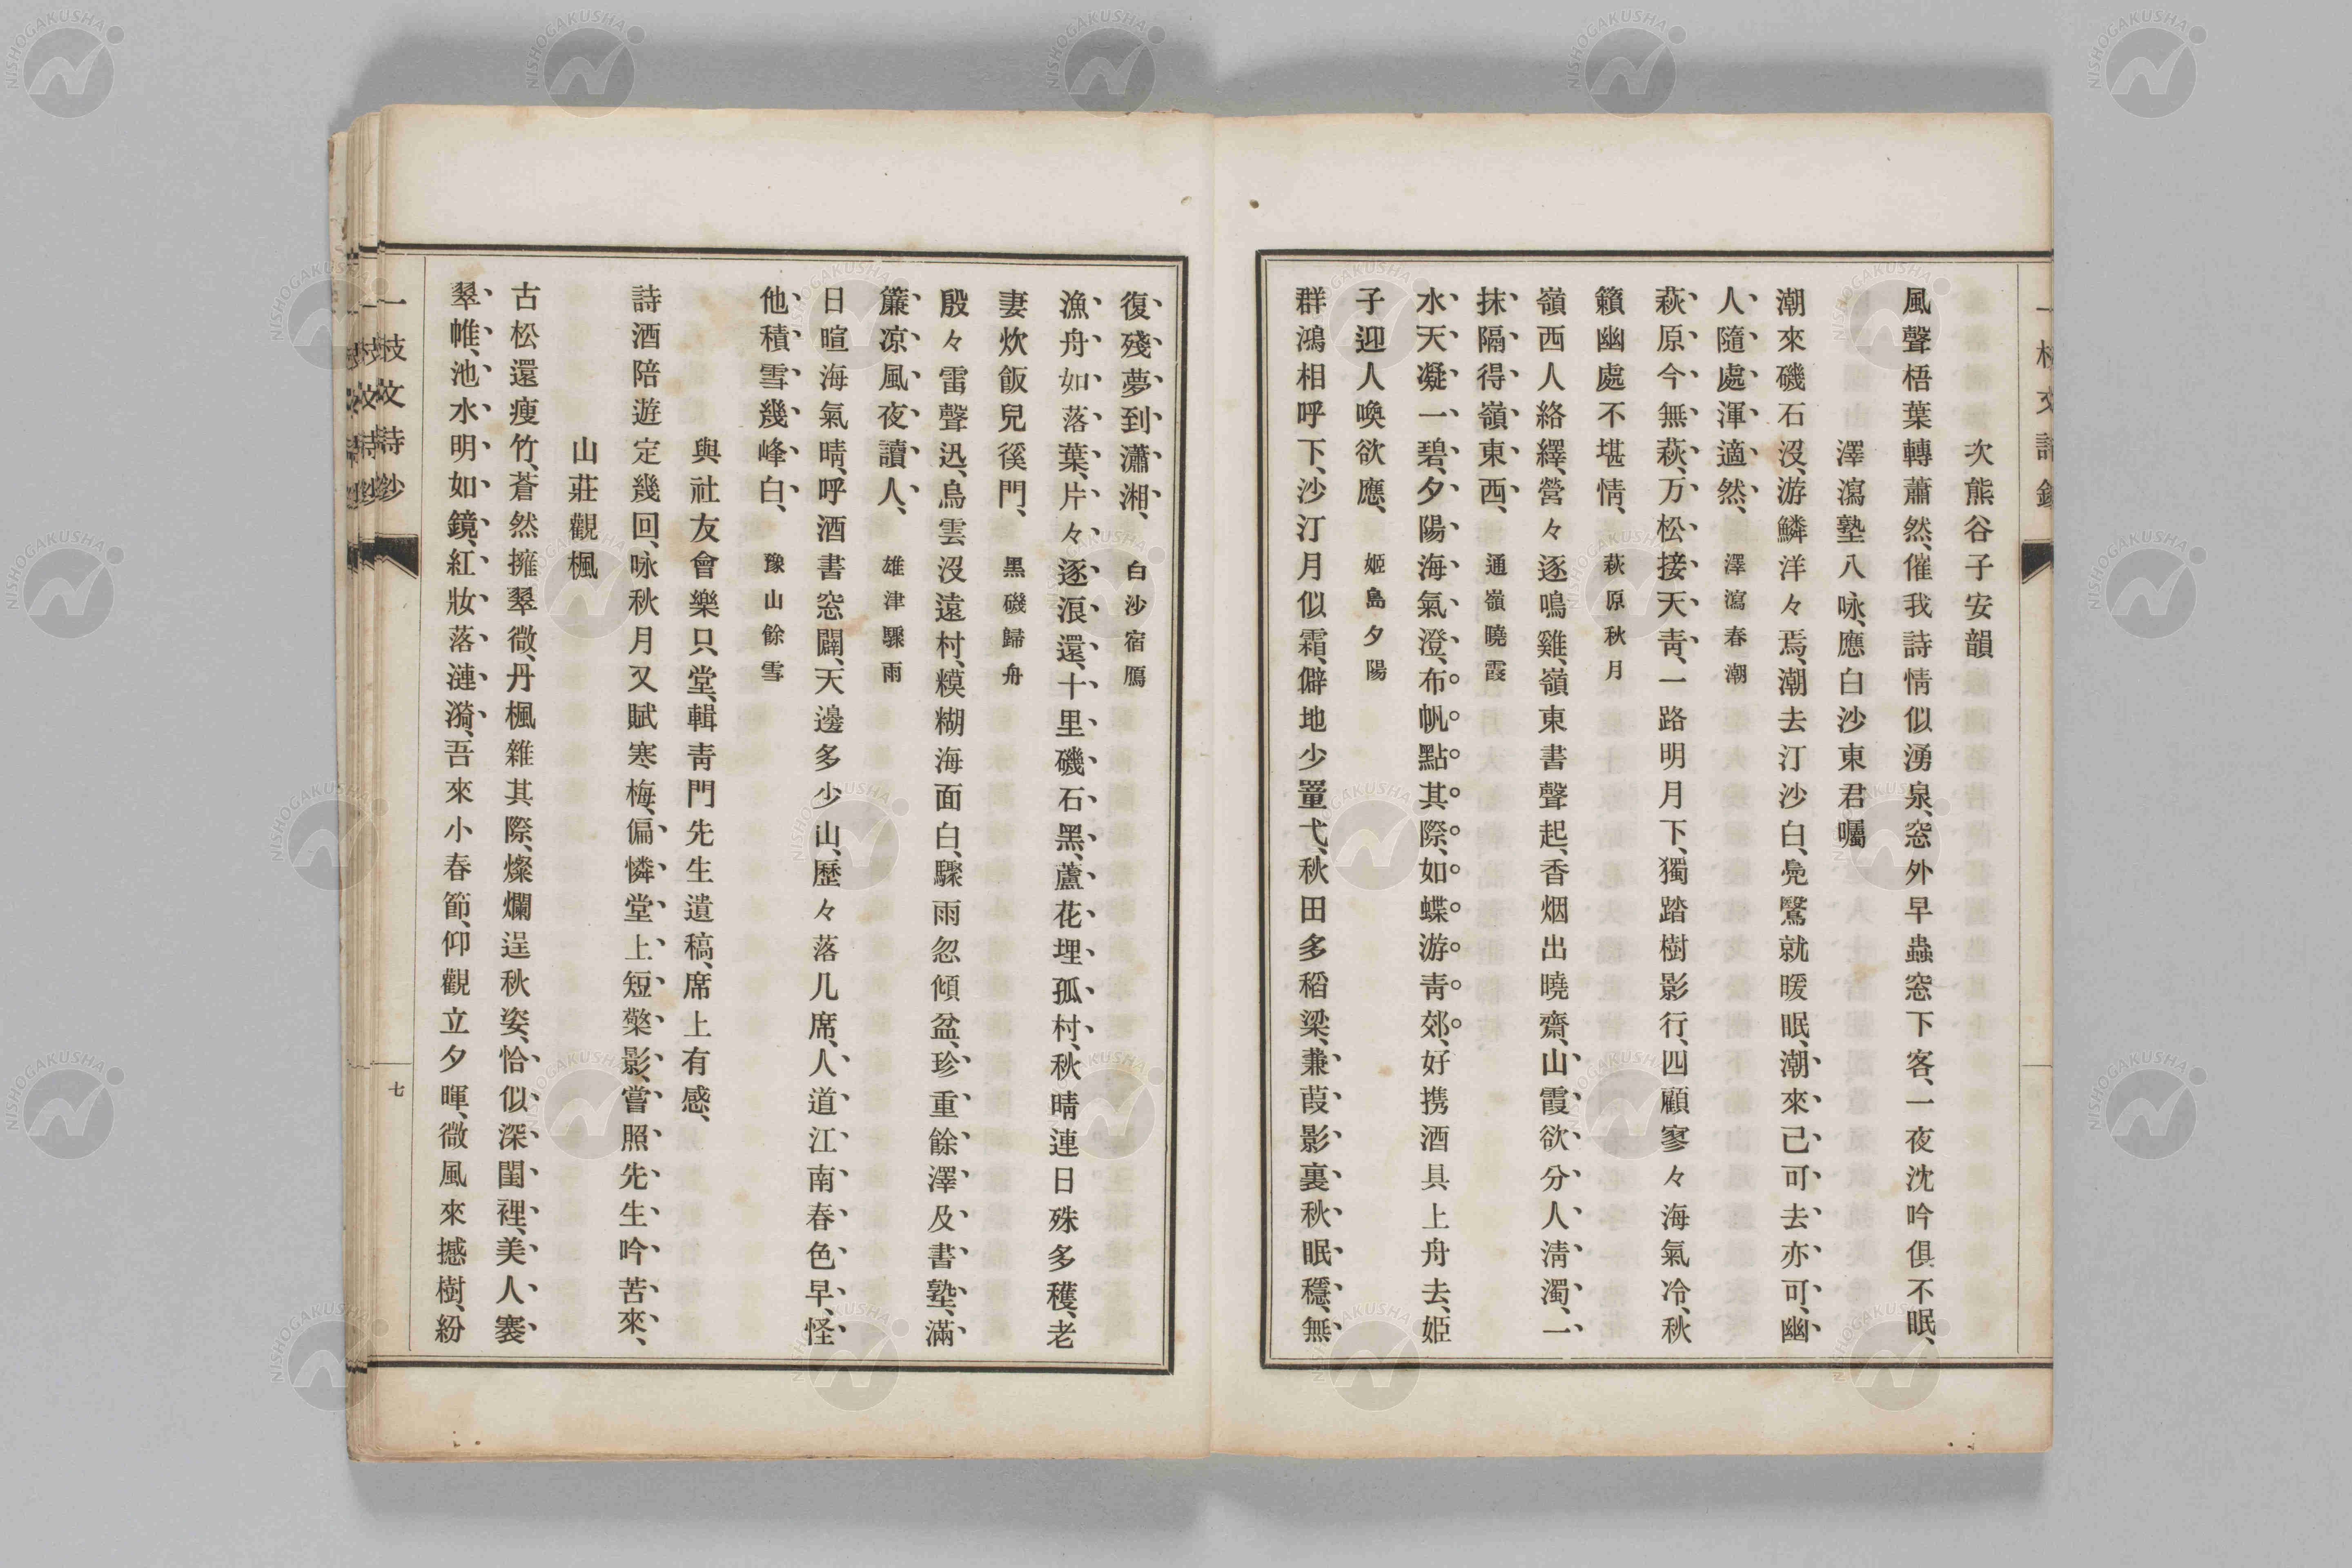 一枝文詩鈔
次熊谷子安韻
風聲梧葉轉蕭然、催我詩情似湧泉、窓外早蟲窓下客、一夜沈吟俱不眠、
澤瀉塾八咏、應白沙東君囑
潮來磯石沒、游鱗洋々焉、潮去汀沙白、鳧鷖就暖眠、潮來己可去亦可、幽
人隨處渾適然、澤瀉春潮
萩原今無萩、万松接天靑、一路明月下、獨踏樹影行、四顧寥々海氣冷、秋
籟幽處不堪情、萩原秋月
嶺西人絡繹、營々逐鳴雞、嶺東書聲起、香烟出曉齋、山霞欲分人淸濁、一
抹隔得嶺東西、通嶺曉霞
水天凝一碧、夕陽海氣澄、布帆點其際、如蝶游靑郊、好携酒具上舟去、姫
子迎人喚欲應、姫島夕陽
群鴻相呼下、沙汀月似霜、僻地少罿弋、秋田多稻梁、蒹葭影裏秋眠穩、無
復殘夢到瀟湘、白沙宿鴈
漁舟如落葉、片々逐浪還、十里磯石黑、蘆花埋孤村、秋晴連日殊多穫、老
妻炊飯兒徯門、黑磯歸舟
殷々雷聲迅、烏雲沒遠村、糢糊海面白、驟雨忽傾盆、珍重餘澤及書塾、滿
簾凉風夜讀人、雄津驟雨
日暄海氣晴、呼酒書窓闢、天邊多少山、歷々落几席、人道江南春色早、怪
他積雪幾峰白、豫山餘雪
與社友會樂只堂、輯靑門先生遺稿、席上有感、
詩酒陪遊定幾回、咏秋月又賦寒梅、偏憐堂上短檠影、嘗照先生吟苦來、
山莊觀楓
古松還瘦竹、蒼然擁翠微、丹楓雜其際、燦爛逞秋姿、恰似深閨裡、美人褰
翠帷、池水明如鏡、紅妝落漣漪、吾來小春節、仰觀立夕暉、微風來撼樹、紛
一枝文詩鈔
七